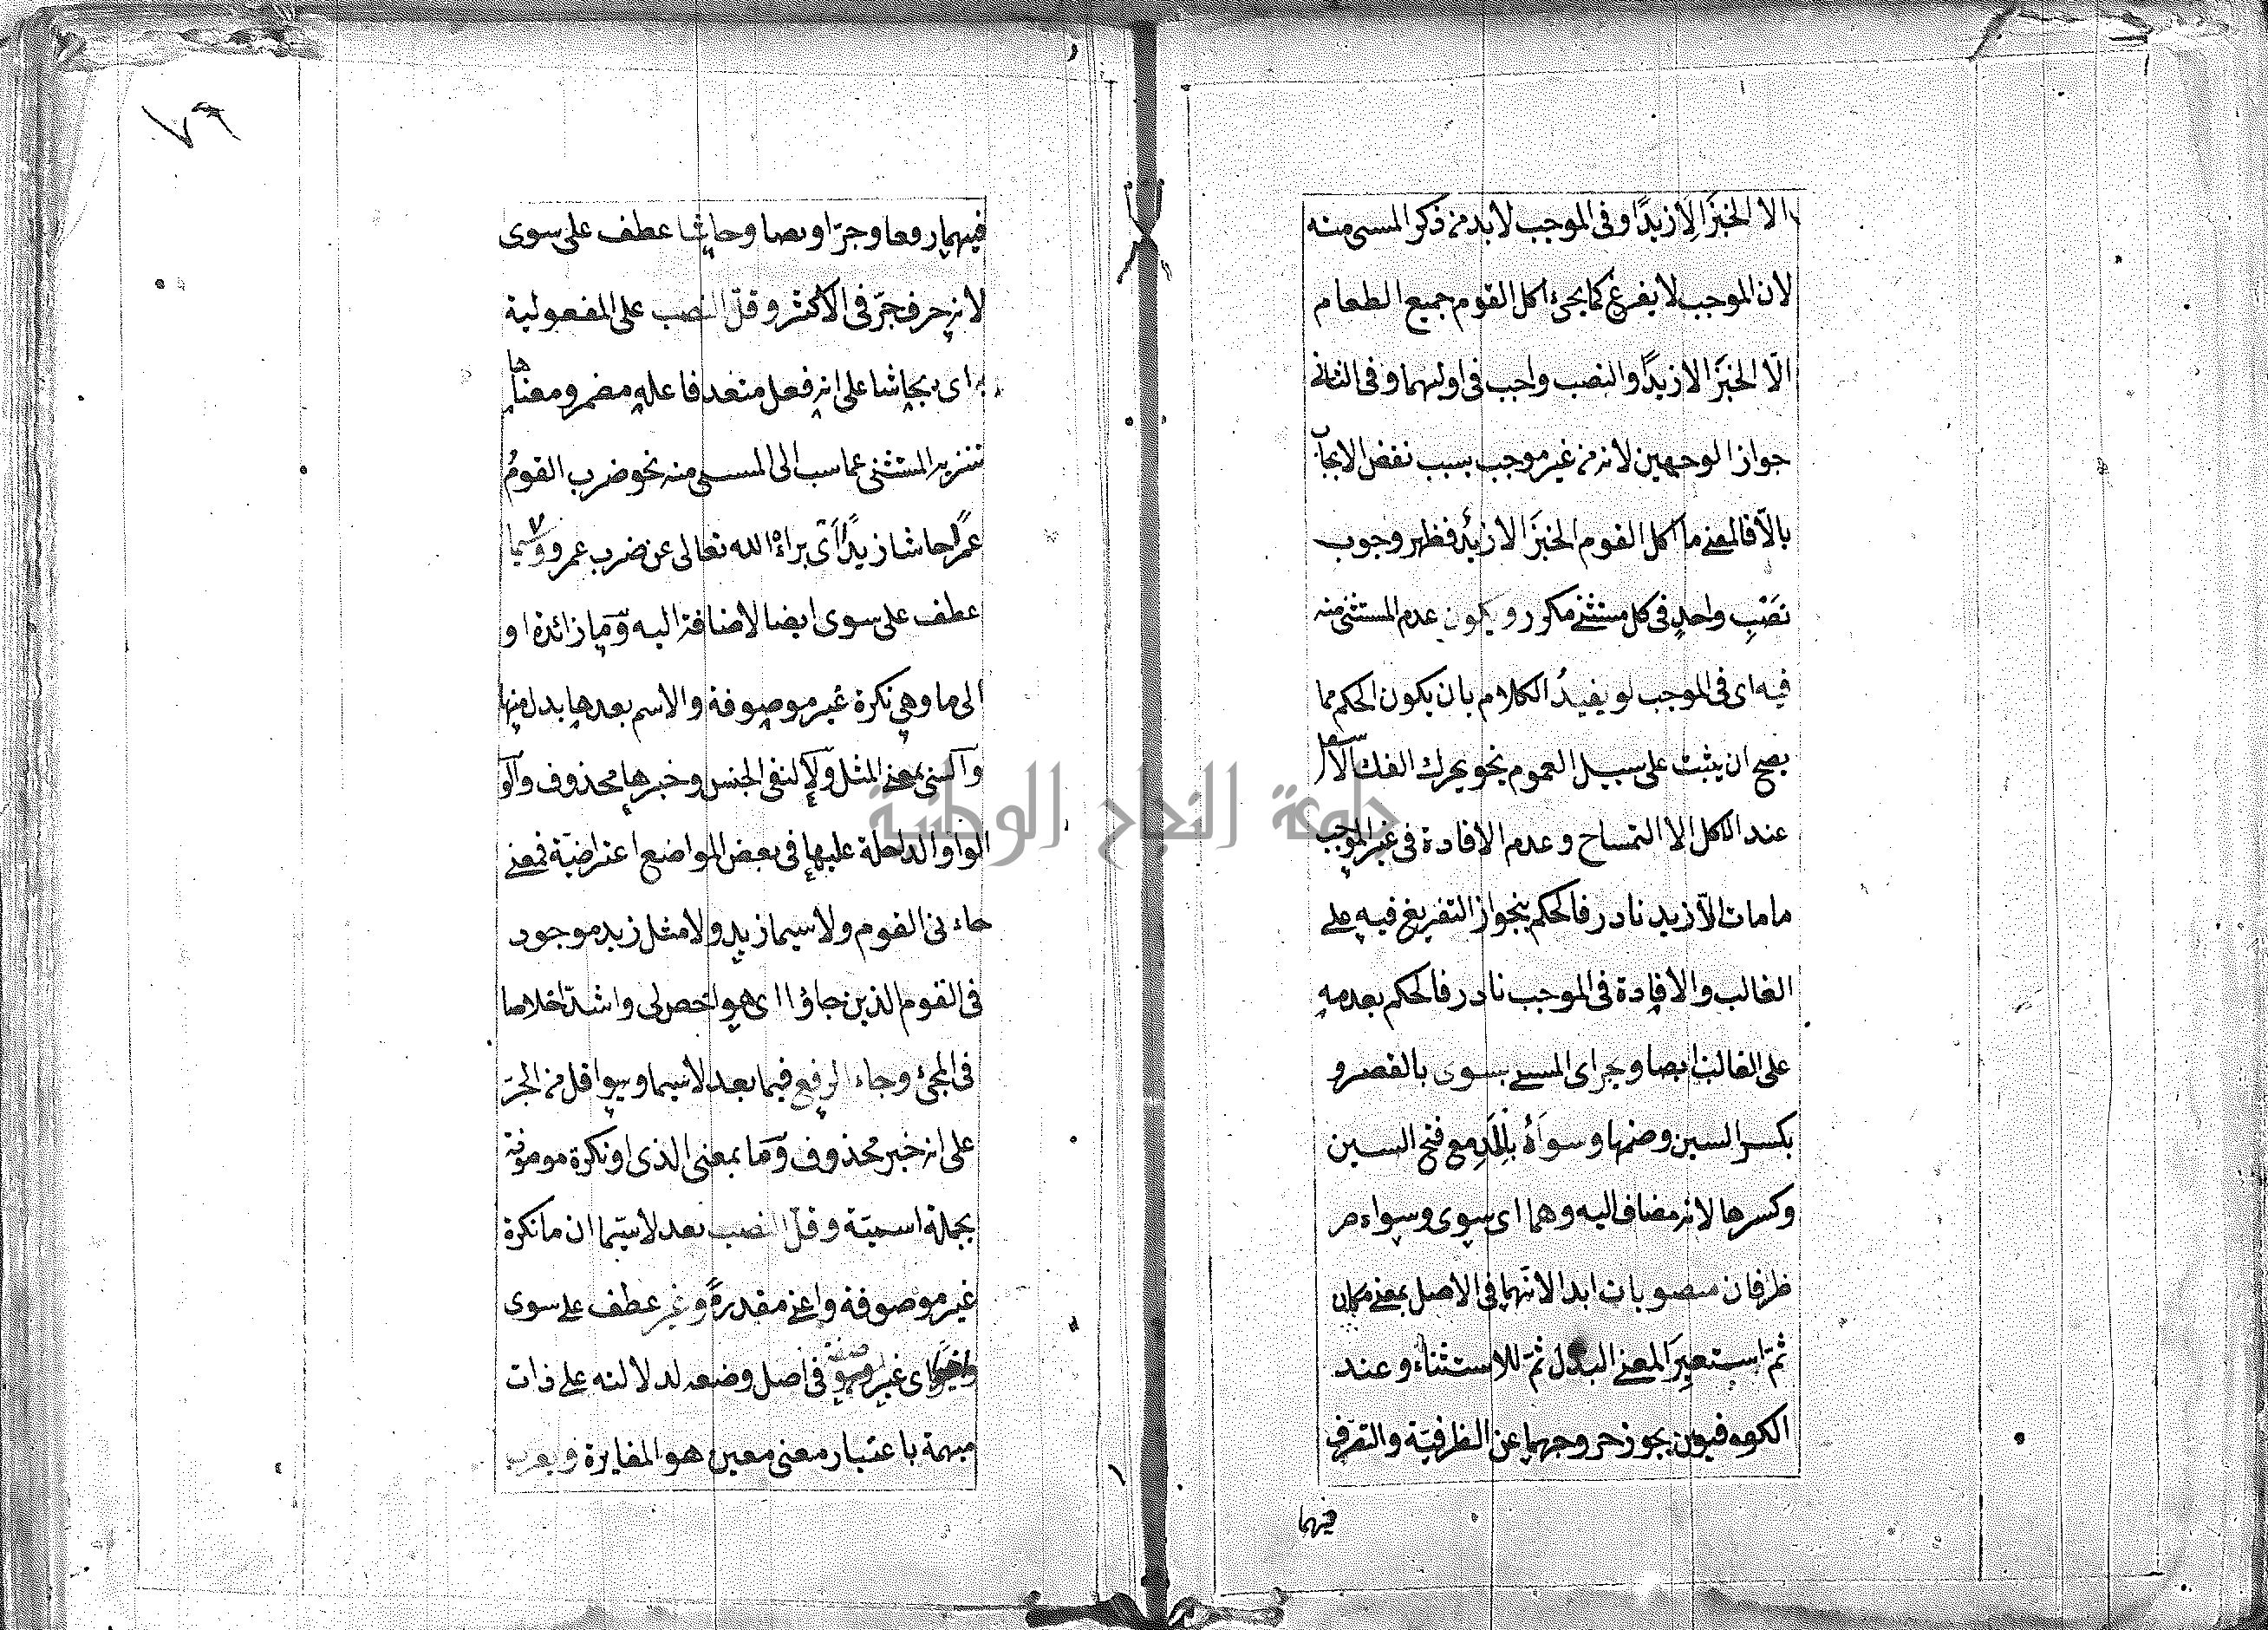 الا الخبزَ الا زيدًا وفى الموجب لابد من ذكر المستثنى منه
لان الموجب لا يفرغ كما يجئ اكل القوم جميع الطعام
الّا الخبزَ الا زيدًا والنصب واجب فى اولهما وفى الثانى
جواز الوجهين لانه من غير موجب بسبب نقض الايجاب
بالّا فالمعنى ما اكل القوم الخبزَ الا زيدٌ فظهر وجوب
نصْبِ واحدٍ فى كل مستثنى مكرر ويكون عدم المستثنى منه
فيه اى فى الموجب لو يفيدُ الكلام بان يكون الحكم مما
يصح ان يثبت على سبيل العموم نحو يحرك الفك الاسفل
عند الاكل الا التمساح وعدم الافادة فى غير الموجب
ما مات الّا زيد نادر فالحكم بجواز التفريغ فيه على
الغالب والافادة فى الموجب نادر فالحكم بعدمه
على الغالب ايضا وجر اى المستثنى بسوى بالقصر و
بكسر السين وضمها وسواءٌ بالمد مع فتح السين
وكسرها لانه مضاف اليه وهما اى سوى وسواء
ظرفان منصوبان ابدا لانّهما فى الاصل بمعنى مكان
ثمّ استعير المعنى البدل ثمّ للاستثناء وعند
الكوفيون يجوز خروجهما عن الظرفيّة والتصرّف
فيهما
٧٩
فيهما رفعا وجرّا ونصبا وحاشا عطف على سوى
لانه حرف جرّ فى الاكثر وقلّ النصب على المفعولية
به اى بحاشا على انه فعل متعد فاعله مضمر ومعناها
تنزيه المستثنى عما نسب الى المستثنى منه نحو ضرب القومُ
عمرًا حاشا زيدًا اى براءة الله تعالى عن ضرب عمرو ولا سيما
عطف على سوى ايضا لاضافة اليه وما زائدة او
الى ما وهى نكرة غير موصوفة والاسم بعدها بدل منها
والسى بمعنى المثل ولا لنفى الجنس وخبرها محذوف والو
الواو الداخلة عليها فى بعض المواضع اعتراضيّة فمعنى
جاءنى القوم ولا سيما زيدٍ ولا مثل زيد موجود
فى القوم الذين جاؤا اى هو اخص لى واشدّ اخلاصا
فى المجئ وجاء الرفع فيما بعد لا سيما وهو اقل من الجرّ
على انه خبر محذوف وما بمعنى الذى او نكرة موصوفة
بجملة اسميّة وقلّ النصب بعد لا سيّما ان ما نكرة
غير موصوفة واعنى مقدرةً وغير عطف على سوى
اى غير صفة فى اصل وضعه لدلالته على ذات
مبهمة باعتبار معنى معين هو المغايرة ويعرب
جامعة النجاح الوطنية